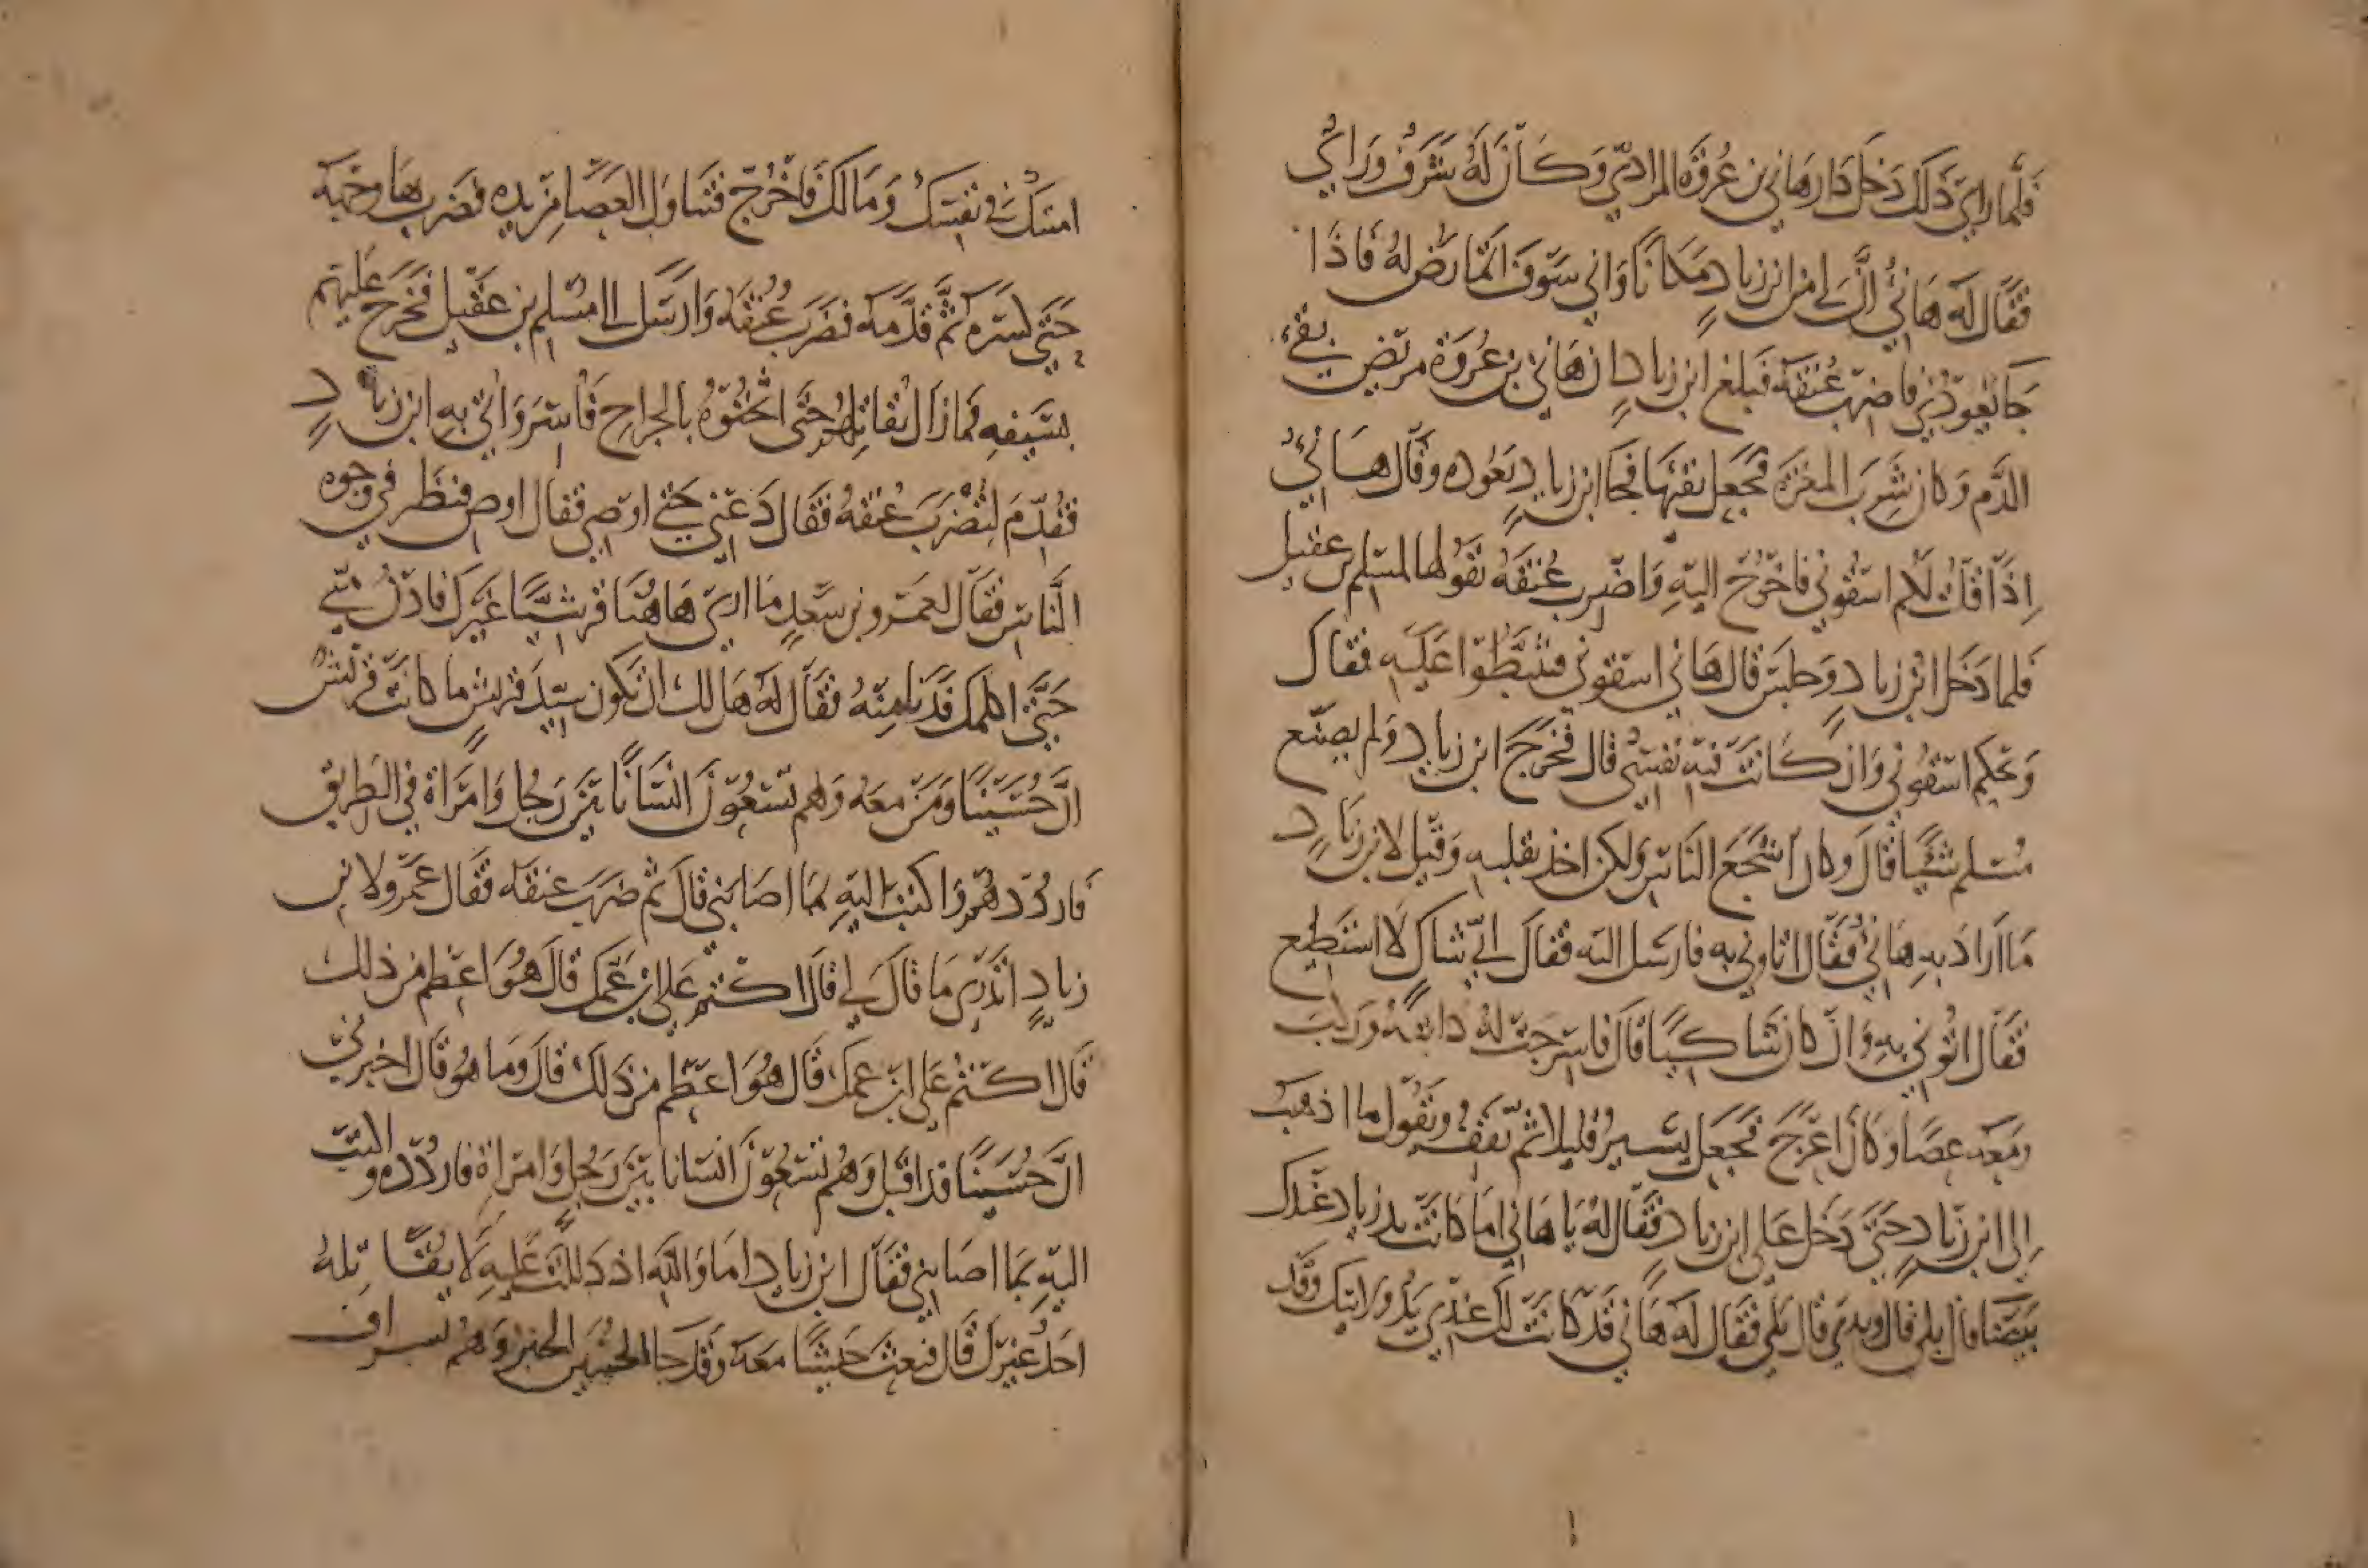 فلما راى ذلك دخل دار هاني بن عروة المرادي وكان له شرف وراي
فقال له هاني ان لي من ابن زياد مكانا واني سوف اتمارض له فاذا
جا يعودني فاضرب عنقه فبلغ ابن زياد ان هاني بن عروة مريض يقيء
الدم وكان شرب المغرة فجعل يقيها فجا ابن زياد يعوده وقال هاني
اذا قلت لكم اسقوني فاخرج اليه واضرب عنقه يقولها لمسلم بن عقيل
فلما دخل ابن زياد وجلس قال هاني اسقوني فتثبطوا عليه فقال
ويحكم اسقوني وان كانت فيه نفسي قال فخرج ابن زياد ولم يصنع
مسلم شيا قال وكان اشجع الناس ولكن اخذ بقلبه وقيل لابن زياد
ما اراد به هاني فقال اتاوني به فارسل اليه فقال اني شاك لا استطيع
فقال ائتوني به وان كان شاكيا قال فاسرجت له دابة وركب
ومعه عصا وكان اعرج فجعل يسير قليلا ثم يقف ويقول ما اذهب
الى ابن زياد حتى دخل على ابن زياد فقال له يا هاني اما كانت يد زياد عندك
بيضا قال بلى قال ويدي قال بلى فقال له هاني قد كانت لك عندي يد ولابيك وقد
امنتك في نفسك ومالك فاخرج فتناول العصا من يده فضرب بها وجهه
حتى كسرها ثم قدمه فضرب عنقه وارسل الى مسلم بن عقيل فخرج عليهم
بسيفه فما زال يقاتلهم حتى اثخنوه بالجراح فاسر واتي به ابن زياد
فقدم ليضرب عنقه فقال دعني حتى اوصي فقال اوص فنظر في وجوه
الناس فقال لعمرو بن سعد ما ارى هاهنا قرشيا غيرك فادن مني
حتى اكلمك فدنا منه فقال له هل لك ان تكون سيد قريش ما كانت قريش
ان حسينا ومن معه وهم تسعون انسانا بين رجل وامراة في الطريق
فارددهم واكتب اليه بما اصابني قال ثم ضرب عنقه فقال عمرو لابن
زياد اتدري ما قال لي قال اكتم على ابن عمك قال هو اعظم من ذلك
قال اكتم على ابن عمك قال هو اعظم من ذلك قال وما هو قال اخبرني
ان حسينا قد اقبل وهم تسعون انسانا بين رجل وامراة فاردده واكتب
اليه بما اصابني فقال ابن زياد اما والله اذ دللت عليه لا يقاتله
احد غيرك قال فبعث جيشا معه وقد جا الحسين الخبر وهم بسراف